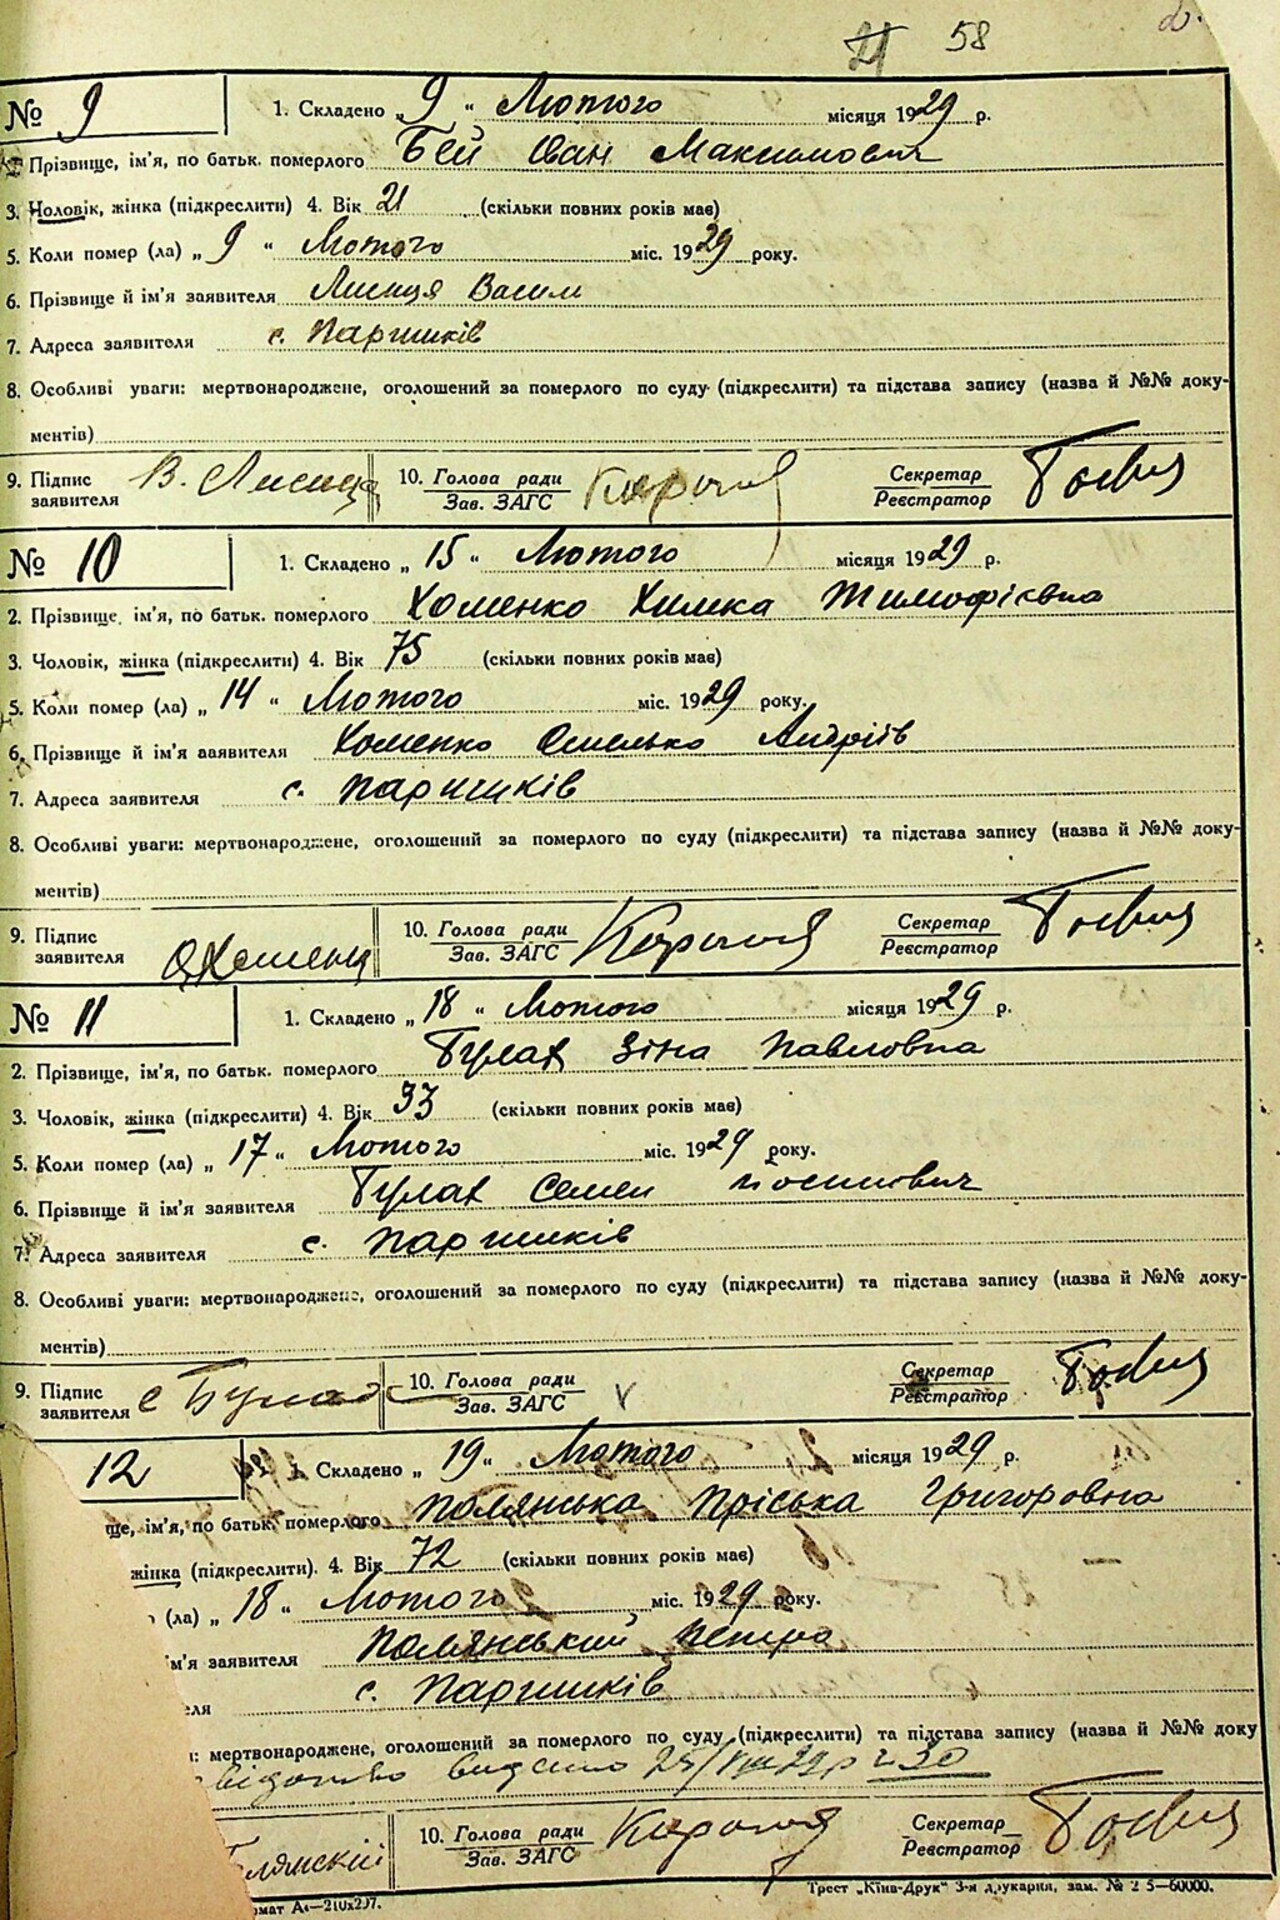 21 58
№ 9 1. Складено „ 9 “ Лютого місяця 1929 р.
Прізвище, ім'я, по батьк. померлого Бей Іван Максимович
3. Чоловік, жінка (підкреслити) 4. Вік 21 (скільки повних років має)
5. Коли помер (ла) „ 9 “ Лютого міс. 1929 року.
6. Прізвище й ім'я заявителя Лисиця Васил
7. Адреса заявителя с. Паришків
8. Особливі уваги: мертвонароджене, оголошений за померлого по суду (підкреслити) та підстава запису (назва й №№ доку-
ментів)
9. Підпис заявителя В. Лисиця 10. Голова ради Зав. ЗАГС Секретар Реєстратор
№ 10 1. Складено „ 15 “ Лютого місяця 1929 р.
2. Прізвище, ім'я, по батьк. померлого Хоменко Химка Тимофієвна
3. Чоловік, жінка (підкреслити) 4. Вік 75 (скільки повних років має)
5. Коли помер (ла) „ 14 “ Лютого міс. 1929 року.
6. Прізвище й ім'я заявителя Хоменко Омелько Андріїв
7. Адреса заявителя с. Паришків
8. Особливі уваги: мертвонароджене, оголошений за померлого по суду (підкреслити) та підстава запису (назва й №№ доку-
ментів)
9. Підпис заявителя О Хоменко 10. Голова ради Зав. ЗАГС Секретар Реєстратор
№ 11 1. Складено „ 18 “ Лютого місяця 1929 р.
2. Прізвище, ім'я, по батьк. померлого Булах Зіна Павловна
3. Чоловік, жінка (підкреслити) 4. Вік 33 (скільки повних років має)
5. Коли помер (ла) „ 17 “ Лютого міс. 1929 року.
6. Прізвище й ім'я заявителя Булах Семен Йосипович
7. Адреса заявителя с. Паришків
8. Особливі уваги: мертвонароджене, оголошений за померлого по суду (підкреслити) та підстава запису (назва й №№ доку-
ментів)
9. Підпис заявителя С Булах 10. Голова ради Зав. ЗАГС Секретар Реєстратор
12 1. Складено „ 19 “ Лютого місяця 1929 р.
ще, ім'я, по батьк. померлого Полянська Пріська Григоровна
жінка (підкреслити). 4. Вік 72 (скільки повних років має)
(ла) „ 18 “ Лютого міс. 1929 року.
м'я заявителя Полянський Петро
еля с. Паришків
: мертвонароджене, оголошений за померлого по суду (підкреслити) та підстава запису (назва й №№ доку
видано 25/VIII 29 р. № 30
олянский 10. Голова ради Зав. ЗАГС Секретар Реєстратор
рмат А4—210х297. Трест „Київ-Друк“ 3-я друкарня, зам. № 2 5—60000.